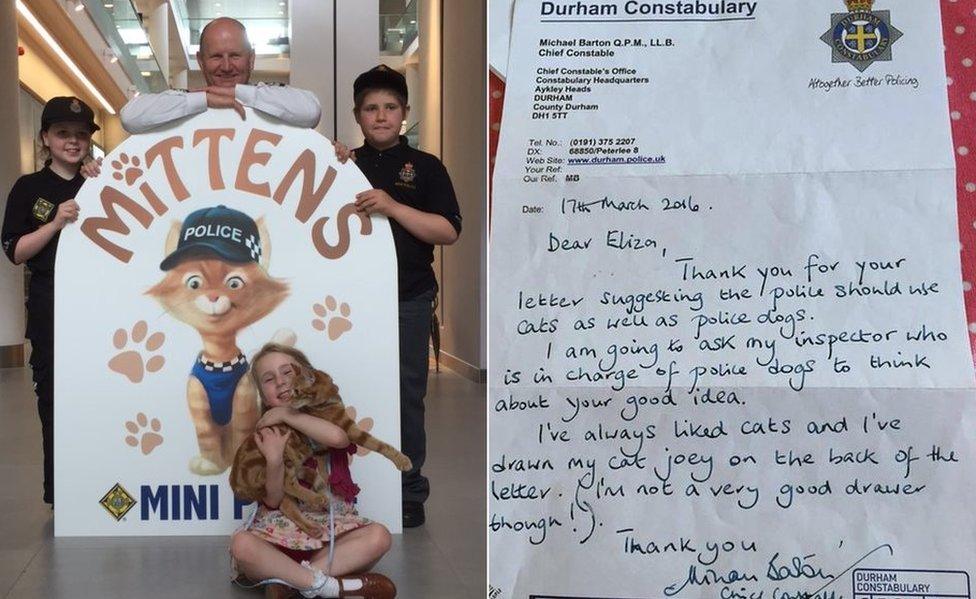 MITTENS
POLICE
MINI P
Durham Constabulary
Michael Barton Q.P.M., LL.B.
Chief Constable
Chief Constable's Office
Constabulary Headquarters
Aykley Heads
DURHAM
County Durham
DH1 5TT
Tel. No.: (0191) 375 2207
DX: 68850/Peterlee 8
Web Site: www.durham.police.uk
Your Ref:
Our Ref. MB
Altogether Better Policing
Date: 17th March 2016.
Dear Eliza,
Thank you for your
letter suggesting the police should use
cats as well as police dogs.
I am going to ask my inspector who
is in charge of police dogs to think
about your good idea.
I've always liked cats and I've
drawn my cat joey on the back of the
letter. (I'm not a very good drawer
though!).
Thank you
Chief Constable
DURHAM CONSTABULARY